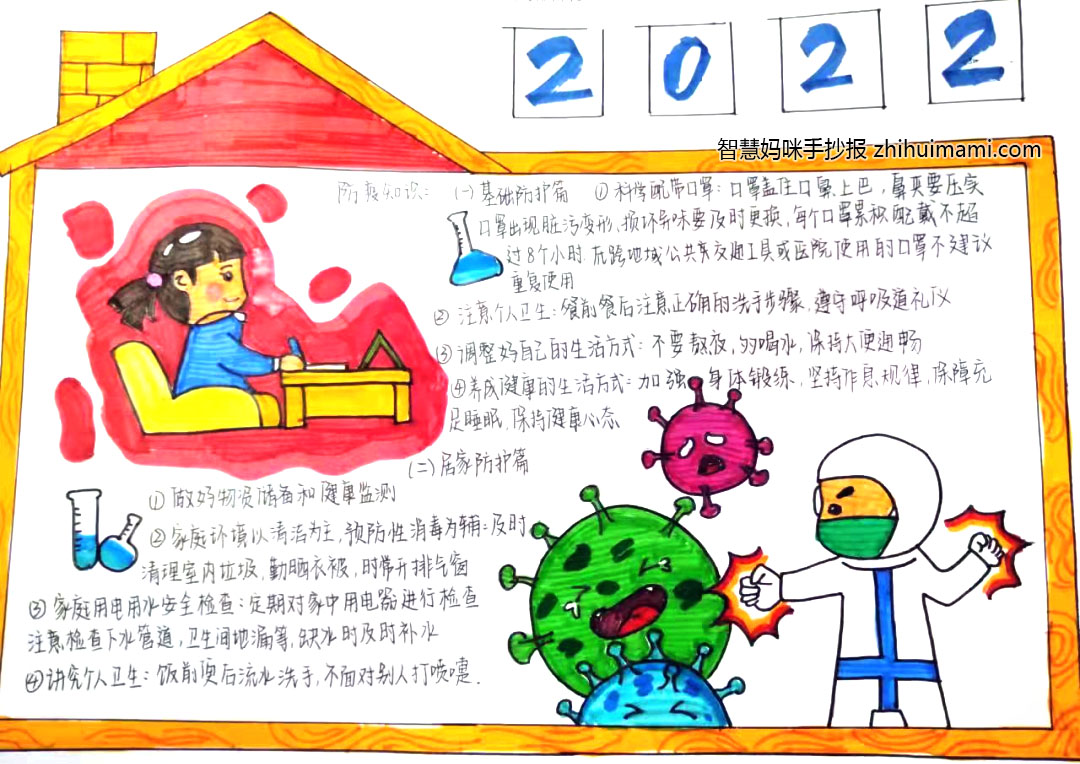 2022
智慧妈咪手抄报 zhihuimami.com
防疫知识: (一)基础防护篇 ①科学配带口罩: 口罩盖住口鼻上巴, 鼻夹要压实
口罩出现脏污变形、损坏异味要及时更换, 每个口罩累积配戴不超
过8个小时. 在跨地域公共交通工具或医院使用的口罩不建议
重复使用
② 注意个人卫生: 餐前餐后注意正确的洗手步骤, 遵守呼吸道礼仪
③ 调整好自己的生活方式: 不要熬夜, 多喝水, 保持大便通畅
④养成健康的生活方式: 加强 身体锻练, 坚持作息规律, 保障充
足睡眠, 保持健康心态
(二)居家防护篇
① 做好物资储备和健康监测
② 家庭环境以清洁为主, 预防性消毒为辅: 及时
清理室内垃圾, 勤晒衣被, 时常开排气窗
③ 家庭用电用水安全检查: 定期对家中用电器进行检查
注意检查下水管道, 卫生间地漏等, 缺水时及时补水
④讲究个人卫生: 饭前便后流水洗手, 不面对别人打喷嚏.